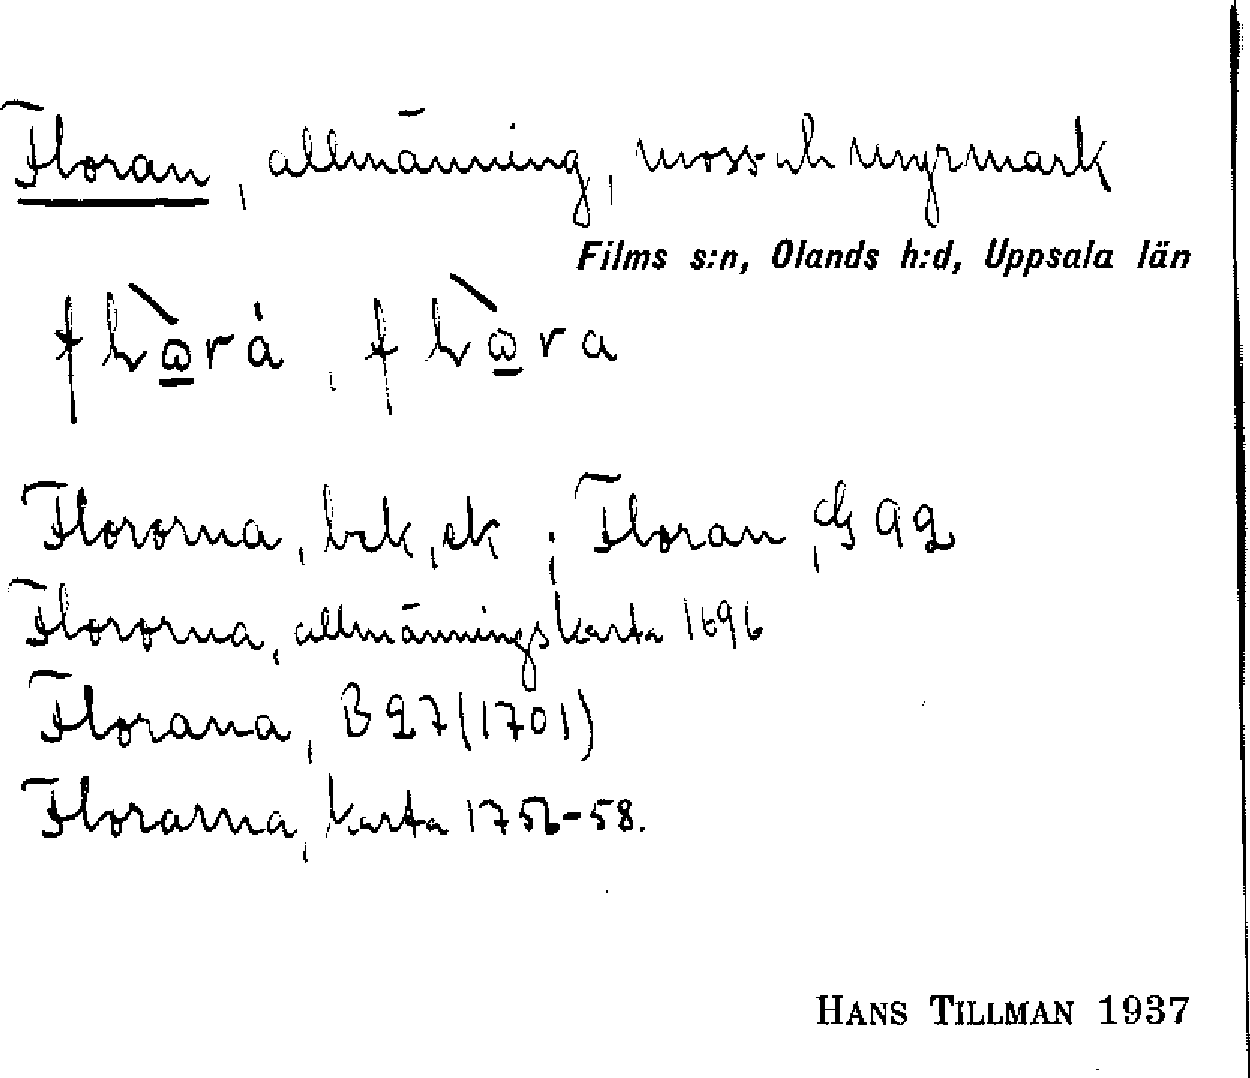 Floran, allmänning, moss- och myrmark
Films s:n, Olands h:d, Uppsala län
Flororna, ek; Floran, G A 2
Flororna, allmänningskarta 1696
Florana, B 27 (1701)
Florarna, karta 1756-58.
HANS TILLMAN 1937